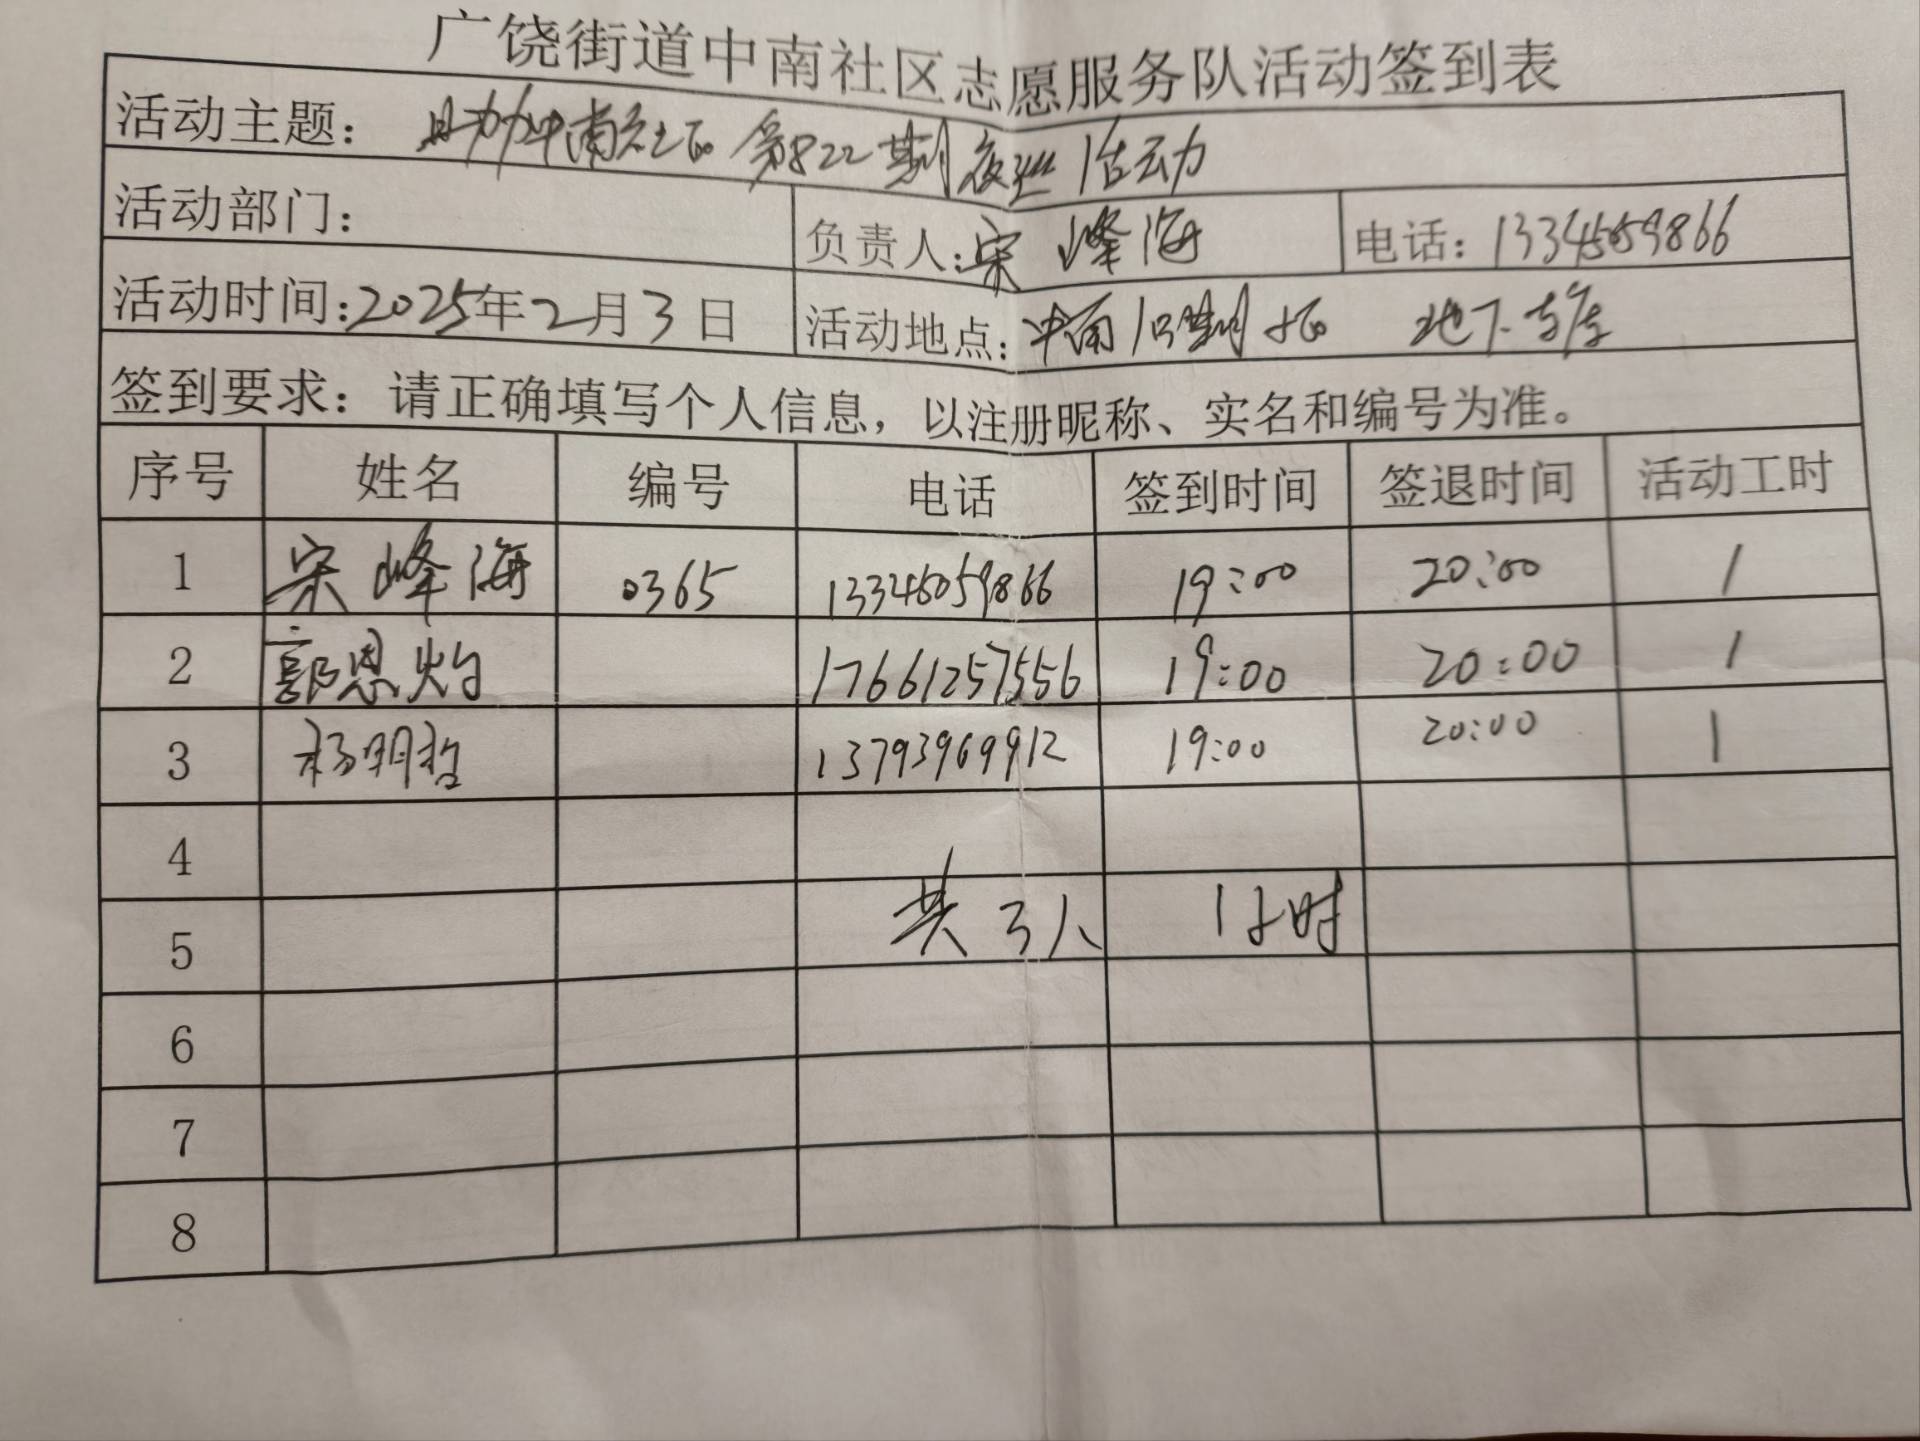 广饶街道中南社区志愿服务队活动签到表
活动主题： 助力中南社区第822期夜巡活动
活动部门： 负责人：宋峰海 电话：
活动时间：2025年2月3日 活动地点：中南 地下车库
签到要求：请正确填写个人信息，以注册昵称、实名和编号为准。
序号 姓名 编号 电话 签到时间 签退时间 活动工时
1 宋峰海 0365 19:00 20:00 1
2 郭恩灼 17661257556 19:00 20:00 1
3 杨明哲 13793969912 19:00 20:00 1
4
5 共3人 1小时
6
7
8